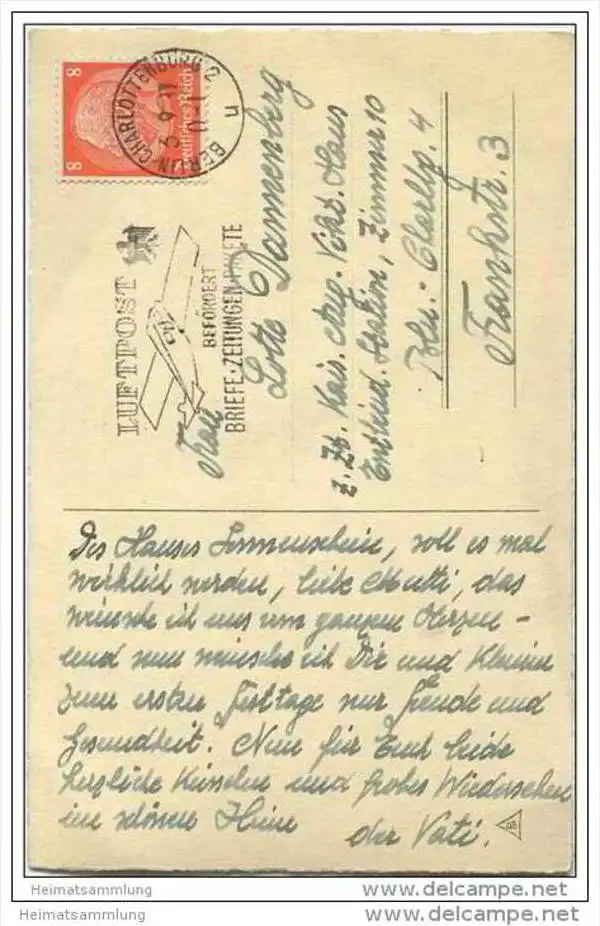 8 8
Deutsches Reich
BERLIN-CHARLOTTENBURG 2
3.
n
LUFTPOST
BEFÖRDERT
BRIEFE·ZEITUNGEN·PAKETE
Frau
Lotte Dannenberg
z. Zt. Kais. Aug. Vikt. Haus
Entbind. Station, Zimmer 10
Bln.-Charlbg. 4
Frankstr. 3
Des Hauses Sonnenschein, soll es mal
wirklich werden, liebe Mutti, das
wünsche ich uns vom ganzen Herzen –
und nun wünsche ich Dir und Kleinen
zum ersten Festtage nur Freude und
Gesundheit. Nun für Euch beide
herzliche Küsschen und frohes Wiedersehen
im schönen Heim
der Vati.
Heimatsammlung
Heimatsammlung
www.delcampe.net
www.delcampe.net